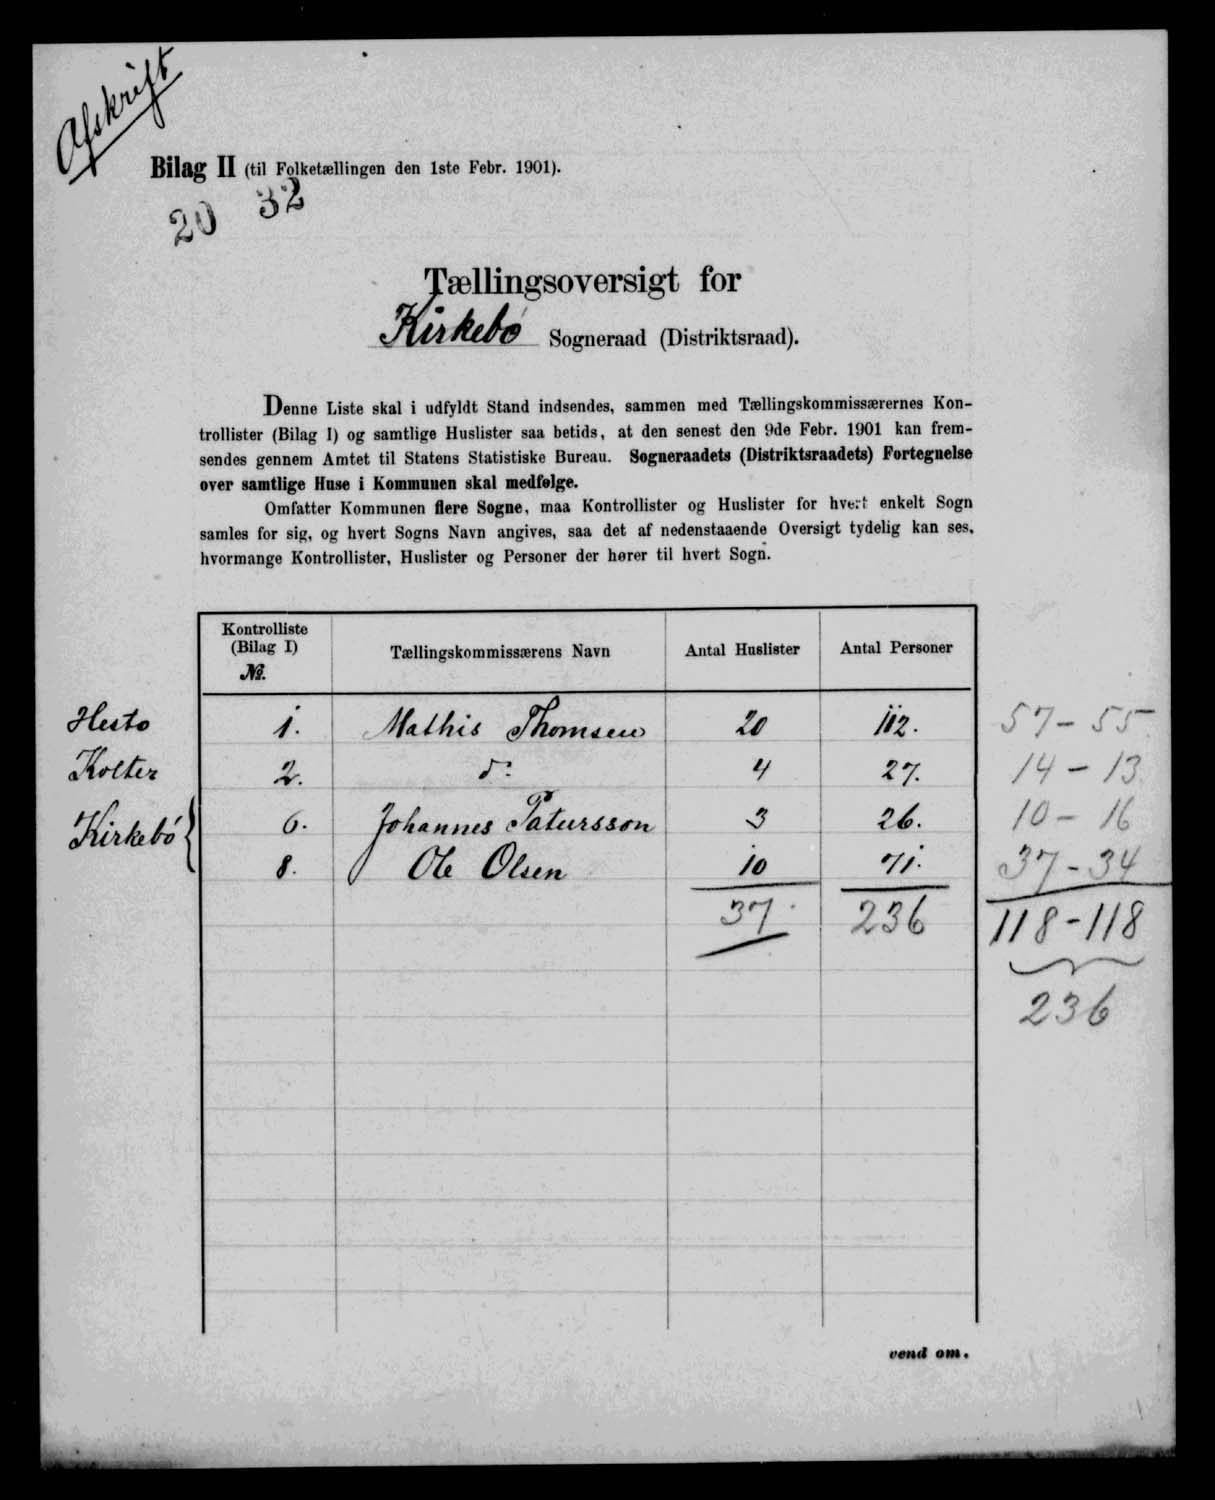 Afskrift
Bilag II (til Folketællingen den 1ste Febr. 1901).
20 32
Tællingsoversigt for
Kirkebø Sogneraad (Distriktsraad).
Denne Liste skal i udfyldt Stand indsendes, sammen med Tællingskommissærernes Kon-
trollister (Bilag I) og samtlige Huslister saa betids, at den senest den 9de Febr. 1901 kan frem-
sendes gennem Amtet til Statens Statistiske Bureau. Sogneraadets (Distriktsraadets) Fortegnelse
over samtlige Huse i Kommunen skal medfølge.
Omfatter Kommunen flere Sogne, maa Kontrollister og Huslister for hvert enkelt Sogn
samles for sig, og hvert Sogns Navn angives, saa det af nedenstaaende Oversigt tydelig kan ses,
hvormange Kontrollister, Huslister og Personer der hører til hvert Sogn.
Kontrolliste (Bilag I) No. Tællingskommissærens Navn Antal Huslister Antal Personer
Hesto 1. Mathis Thomsen 20 112. 57 - 55
Kolter 2. do 4 27. 14 - 13
Kirkebø 6. Johannes Patursson 3 26. 10 - 16
8. Ole Olsen 10 71. 37 - 34
37 236 118 - 118
236
vend om.